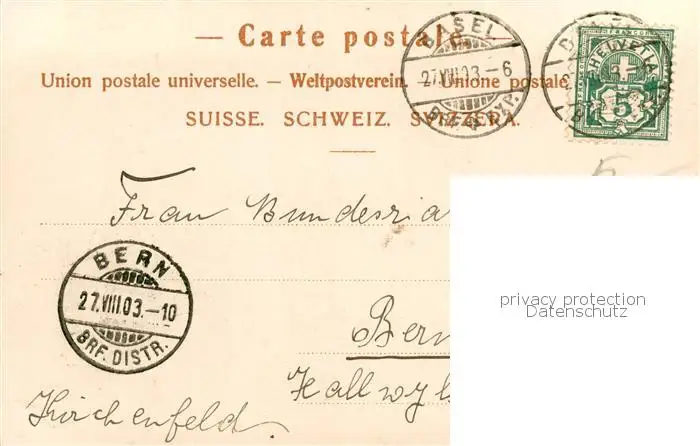 — Carte postale
Union postale universelle. — Weltpostverein. — Unione postale
SUISSE. SCHWEIZ. SVIZZERA.
BASEL
27.VIII.03.-6
HELVETIA
FRANCO
5
Frau Bundesra
BERN
27.VIII.03.-10
BRF. DISTR.
Bern
Hallwyl
Kirchenfeld
privacy protection
Datenschutz